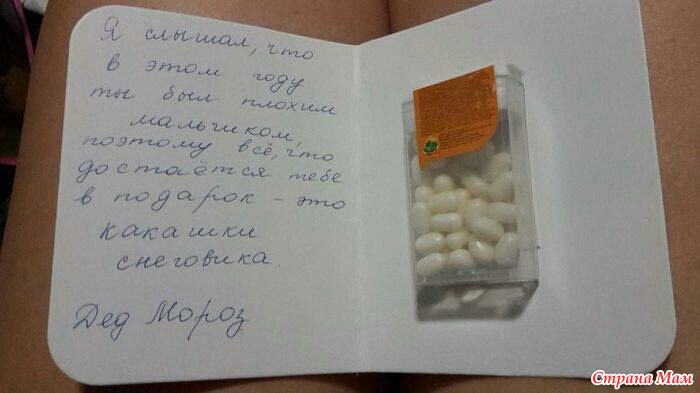 Я слышал, что
в этом году
ты был плохим
мальчиком,
поэтому всё, что
достаётся тебе
в подарок - это
какашки
снеговика.
Дед Мороз
Страна Мам